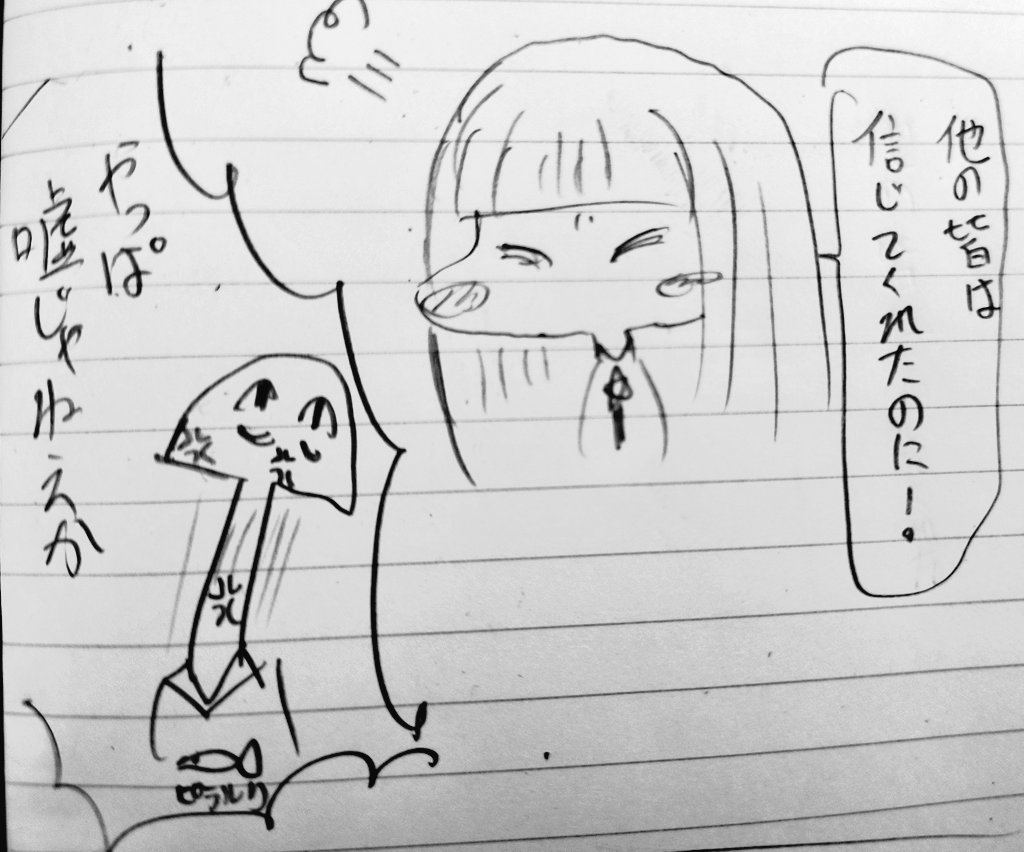 他の皆は
信じてくれたのにー。
やっぱ
嘘じゃねえか
ピラルク